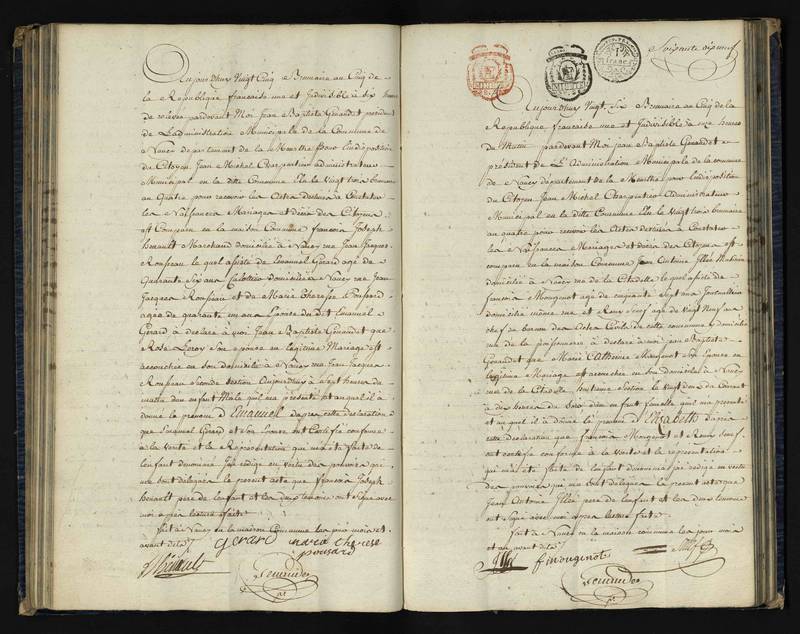 Aujourdhuy Vingt Cinq Brumaire au Cinq de
la Republique francaise une et Indivisible à six heures
de relevee pardevant Moi Jean Baptiste Geraudet president
De Ladministration Municipale de la Commune de
Nancy departement de la Meurthe pour lindisposition
du Citoyen Jean Michel Charpentier administrateur
Municipal en la ditte Commune Elu le Vingt trois brumaire
au Quatre pour recevoir les Actes destinés à Constater
les Naissances Mariages et décès des Citoyens
est Comparu en la maison Commune francois Joseph
henault Marchand domicilié à Nancy rue Jean Jacques
Rousseau le quel assisté de Emanuel Gerard agé de
Quarante six ans domicilié à Nancy rue Jean
Jacques Rousseau et de Marie Therese Poussard
agée de quarante un ans Epouse du dit Emanuel
Gerard à declaré à moi Jean Baptiste Geraudet que
Rose Leroy son epouse en légitime Mariage est
accouchée en son domicile à Nancy rue Jean Jacques
Rousseau seconde section Aujourdhuy à sept heures du
matin dun enfant Male quil ma presenté et auquel il a
donné le prenom D Emanuel dapres cette declaration
que Emanuel Gerard et son Epouse ont Certifié conforme
à la Verité et la Representation qui ma été faite de
lenfant denommé jai redigé en vertu des pouvoirs qui
me sont delegués le present acte que francois Joseph
henault pere de lenfant et les deux temoins ont signé avec
moi apres lecture faite
fait à Nancy en la maison Commune les jour mois et
an avant dits
Gerard maria therese
poussard
henault
Soixante dix neuf
Aujourdhuy Vingt Six Brumaire au Cinq de la
Republique francaise une et Indivisible à onze heures
du Matin pardevant Moi jean Baptiste Geraudet
president de L'Administration Municipale de la commune
de Nancy departement de la Meurthe pour lindisposition
du Citoyen Jean Michel Charpentier Administrateur
Municipal en la ditte Commune Elu le Vingt trois brumaire
au quatre pour recevoir les Actes destinés à Constater
les Naissances Mariages et décès des Citoyens est
comparu en la maison Commune Jean Antoine
domicilié à Nancy rue de la Citadelle le quel assisté de
francois Mougenot agé de cinquante sept ans
domicilié même rue et agé de vingt neuf ans
chef au bureau des Actes Civils de cette commune y domicilié
rue de la à declaré à moi jean Baptiste
Geraudet que Marie Catherine Mougenot Son Epouse en
legitime Mariage est accouchée en son Domicile à Nancy
rue de la Citadelle huitieme Section le vingt deux du Courant
à dix heures du Soir dun enfant femelle quil ma presenté
et auquel il à donné le prenom d'Elisabeth dapres
cette declaration que francois Mougenot et
ont certifié conforme à la Verité et la representation
qui ma été faite de lenfant denommé jai redigé en vertu
des pouvoirs qui me sont delegués le present acte que
Jean Antoine pere de lenfant et les deux temoins
ont signé avec moi apres lecture faite
fait à Nancy en la maison commune les jour mois
et an avant dits
f mougenot